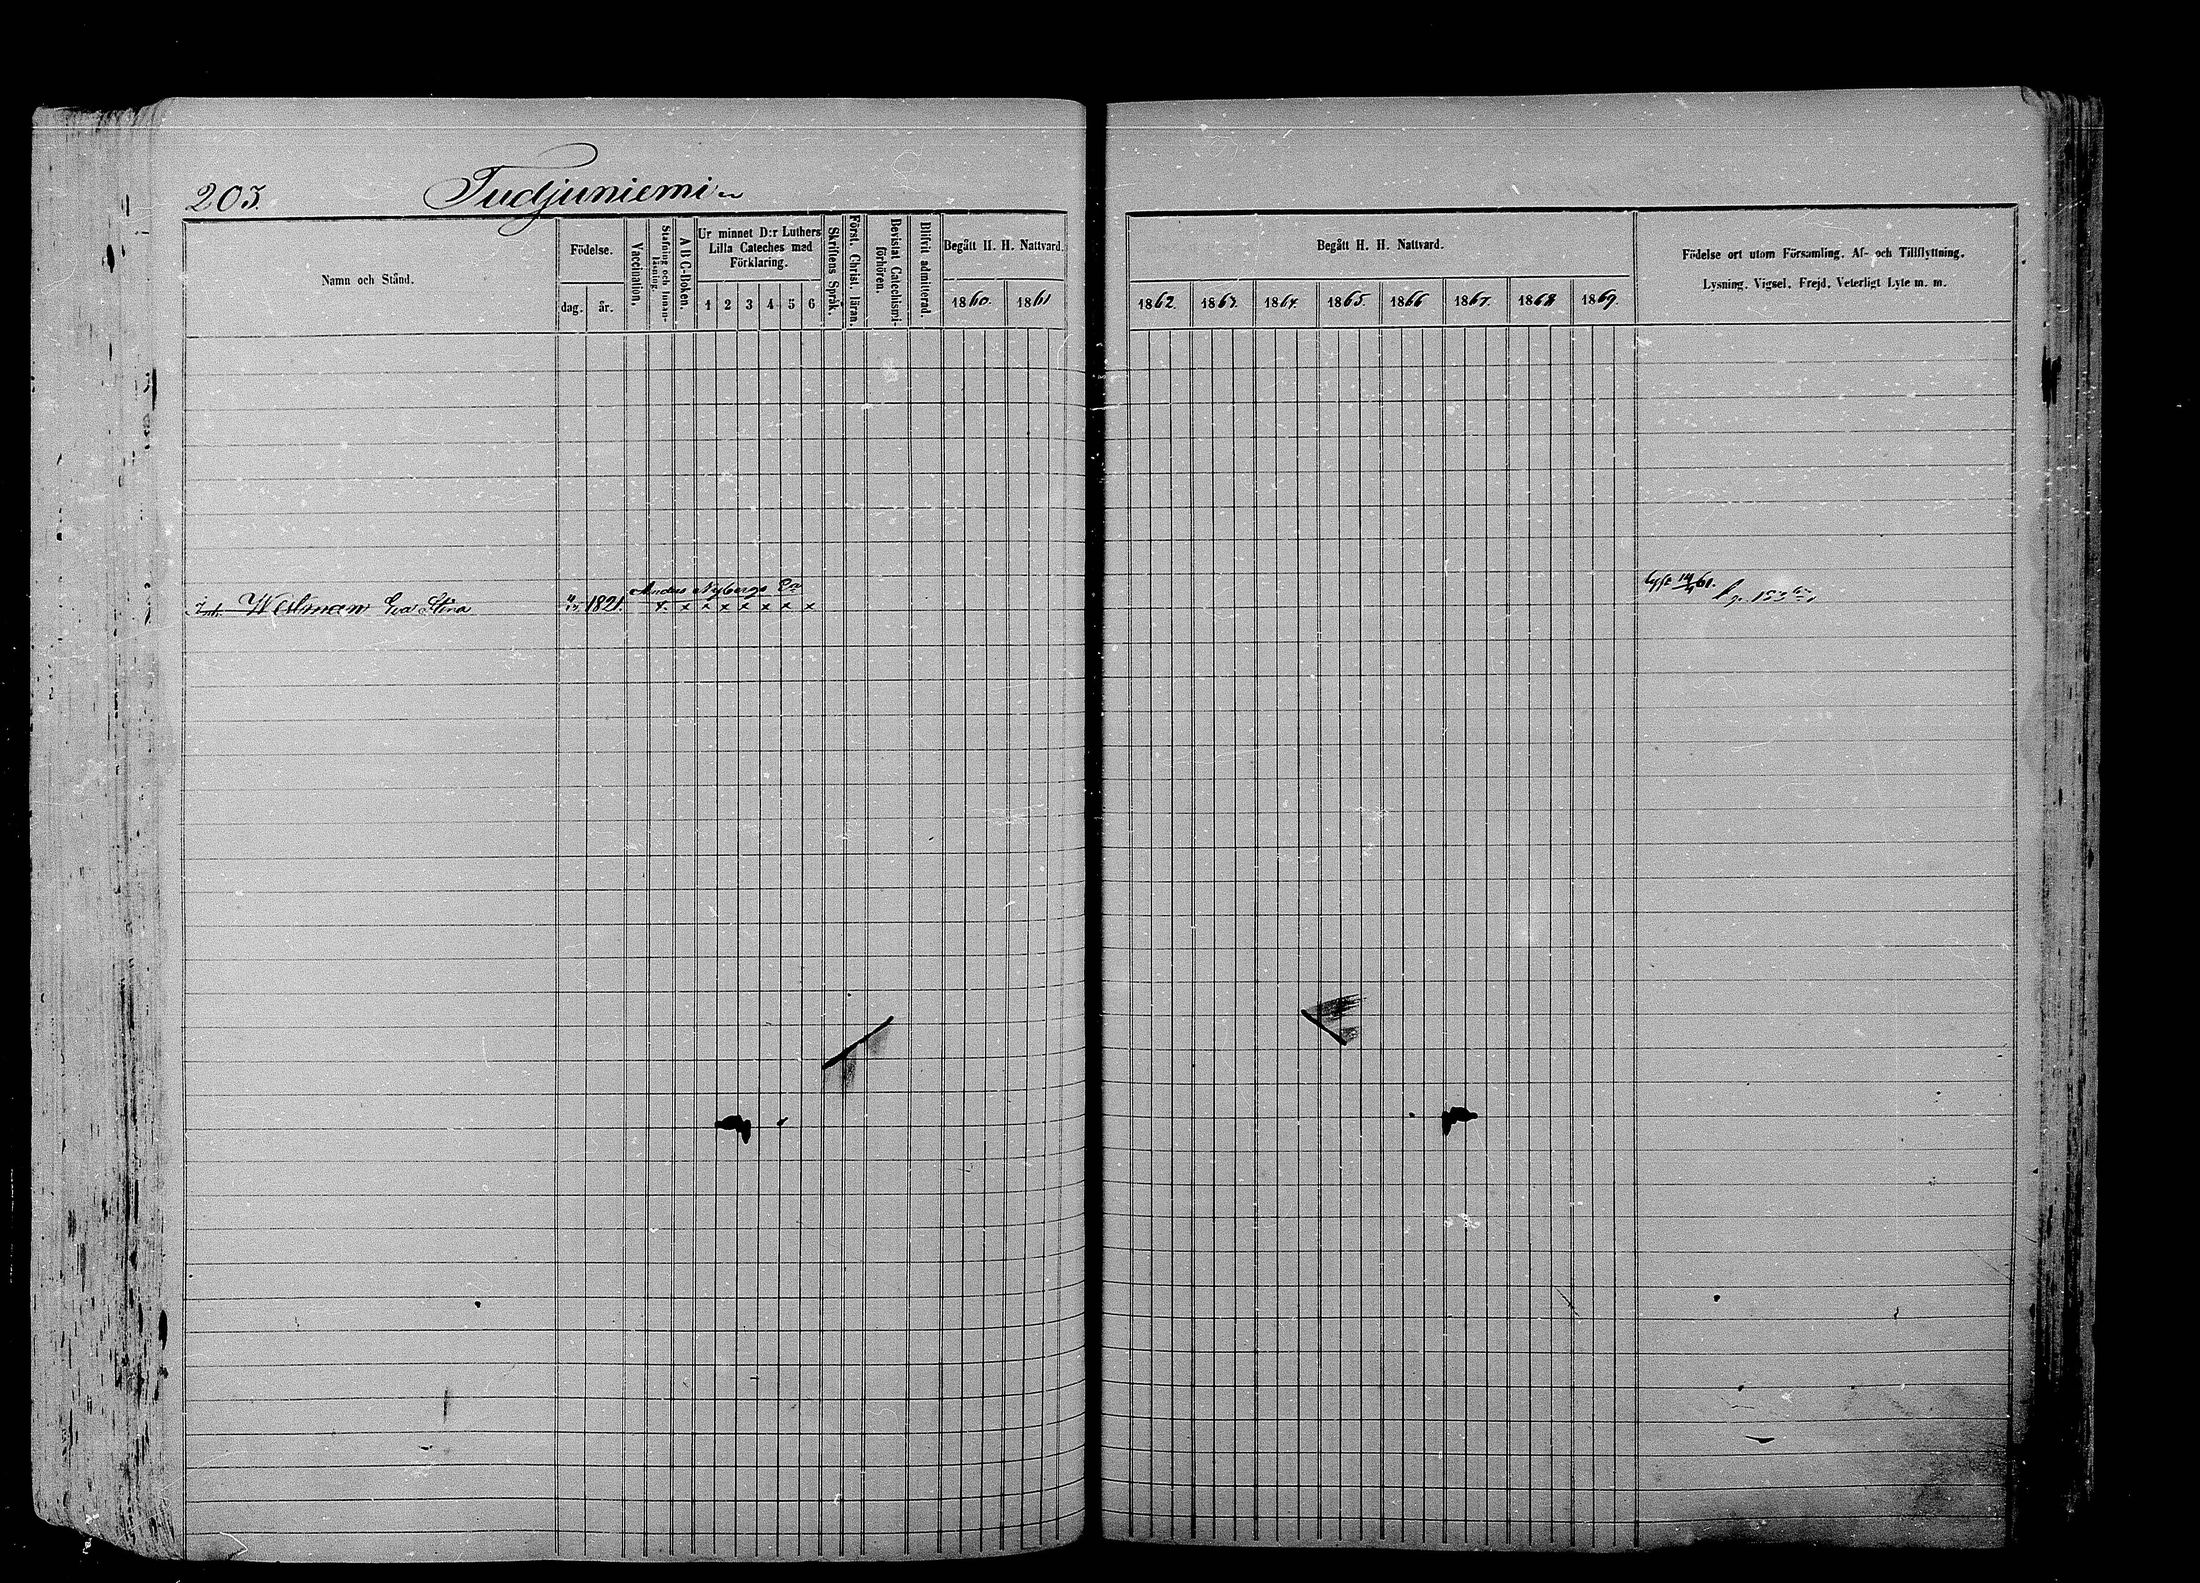 203.
Tudjuniemi
Namn och Stånd.
Födelse.
dag. år.
Vaccination.
Stafning och innanläsning
A B C-Boken.
Ur minnet D:r Luthers
Lilla Cateches med
Förklaring.
1 2 3 4 5 6
Skriftens Språk.
Först. Christ. läran.
Bevistat Catechismi-
förhören.
Blifvit admitterad.
Begått H. H. Nattvard.
1860. 1861
Begått H. H. Nattvard.
1862. 1863. 1864. 1865. 1866 1867. 1868 1869.
Födelse ort utom Församling. Af- och Tillflyttning.
Lysning. Vigsel. Frejd. Veterligt Lyte m. m.
Anders Nybergs
Westman Eva Stina 1821. x x x x x x x x
lyst 61. p. 153